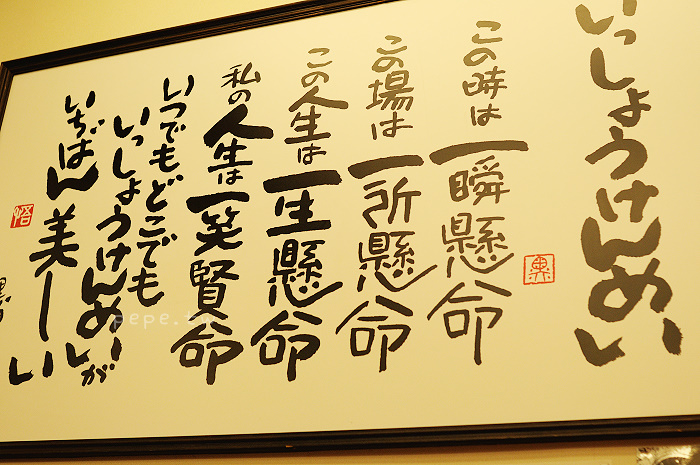 いっしょうけんめい
この時は一瞬懸命
この場は一所懸命
この人生は一生懸命
私の人生は一笑賢命
いつでもどこでも
いっしょうけんめいが
いちばん美しい
pepe.tw